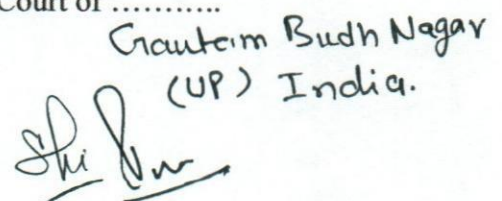 Court of ...........
Gautam Budh Nagar
(UP) India.